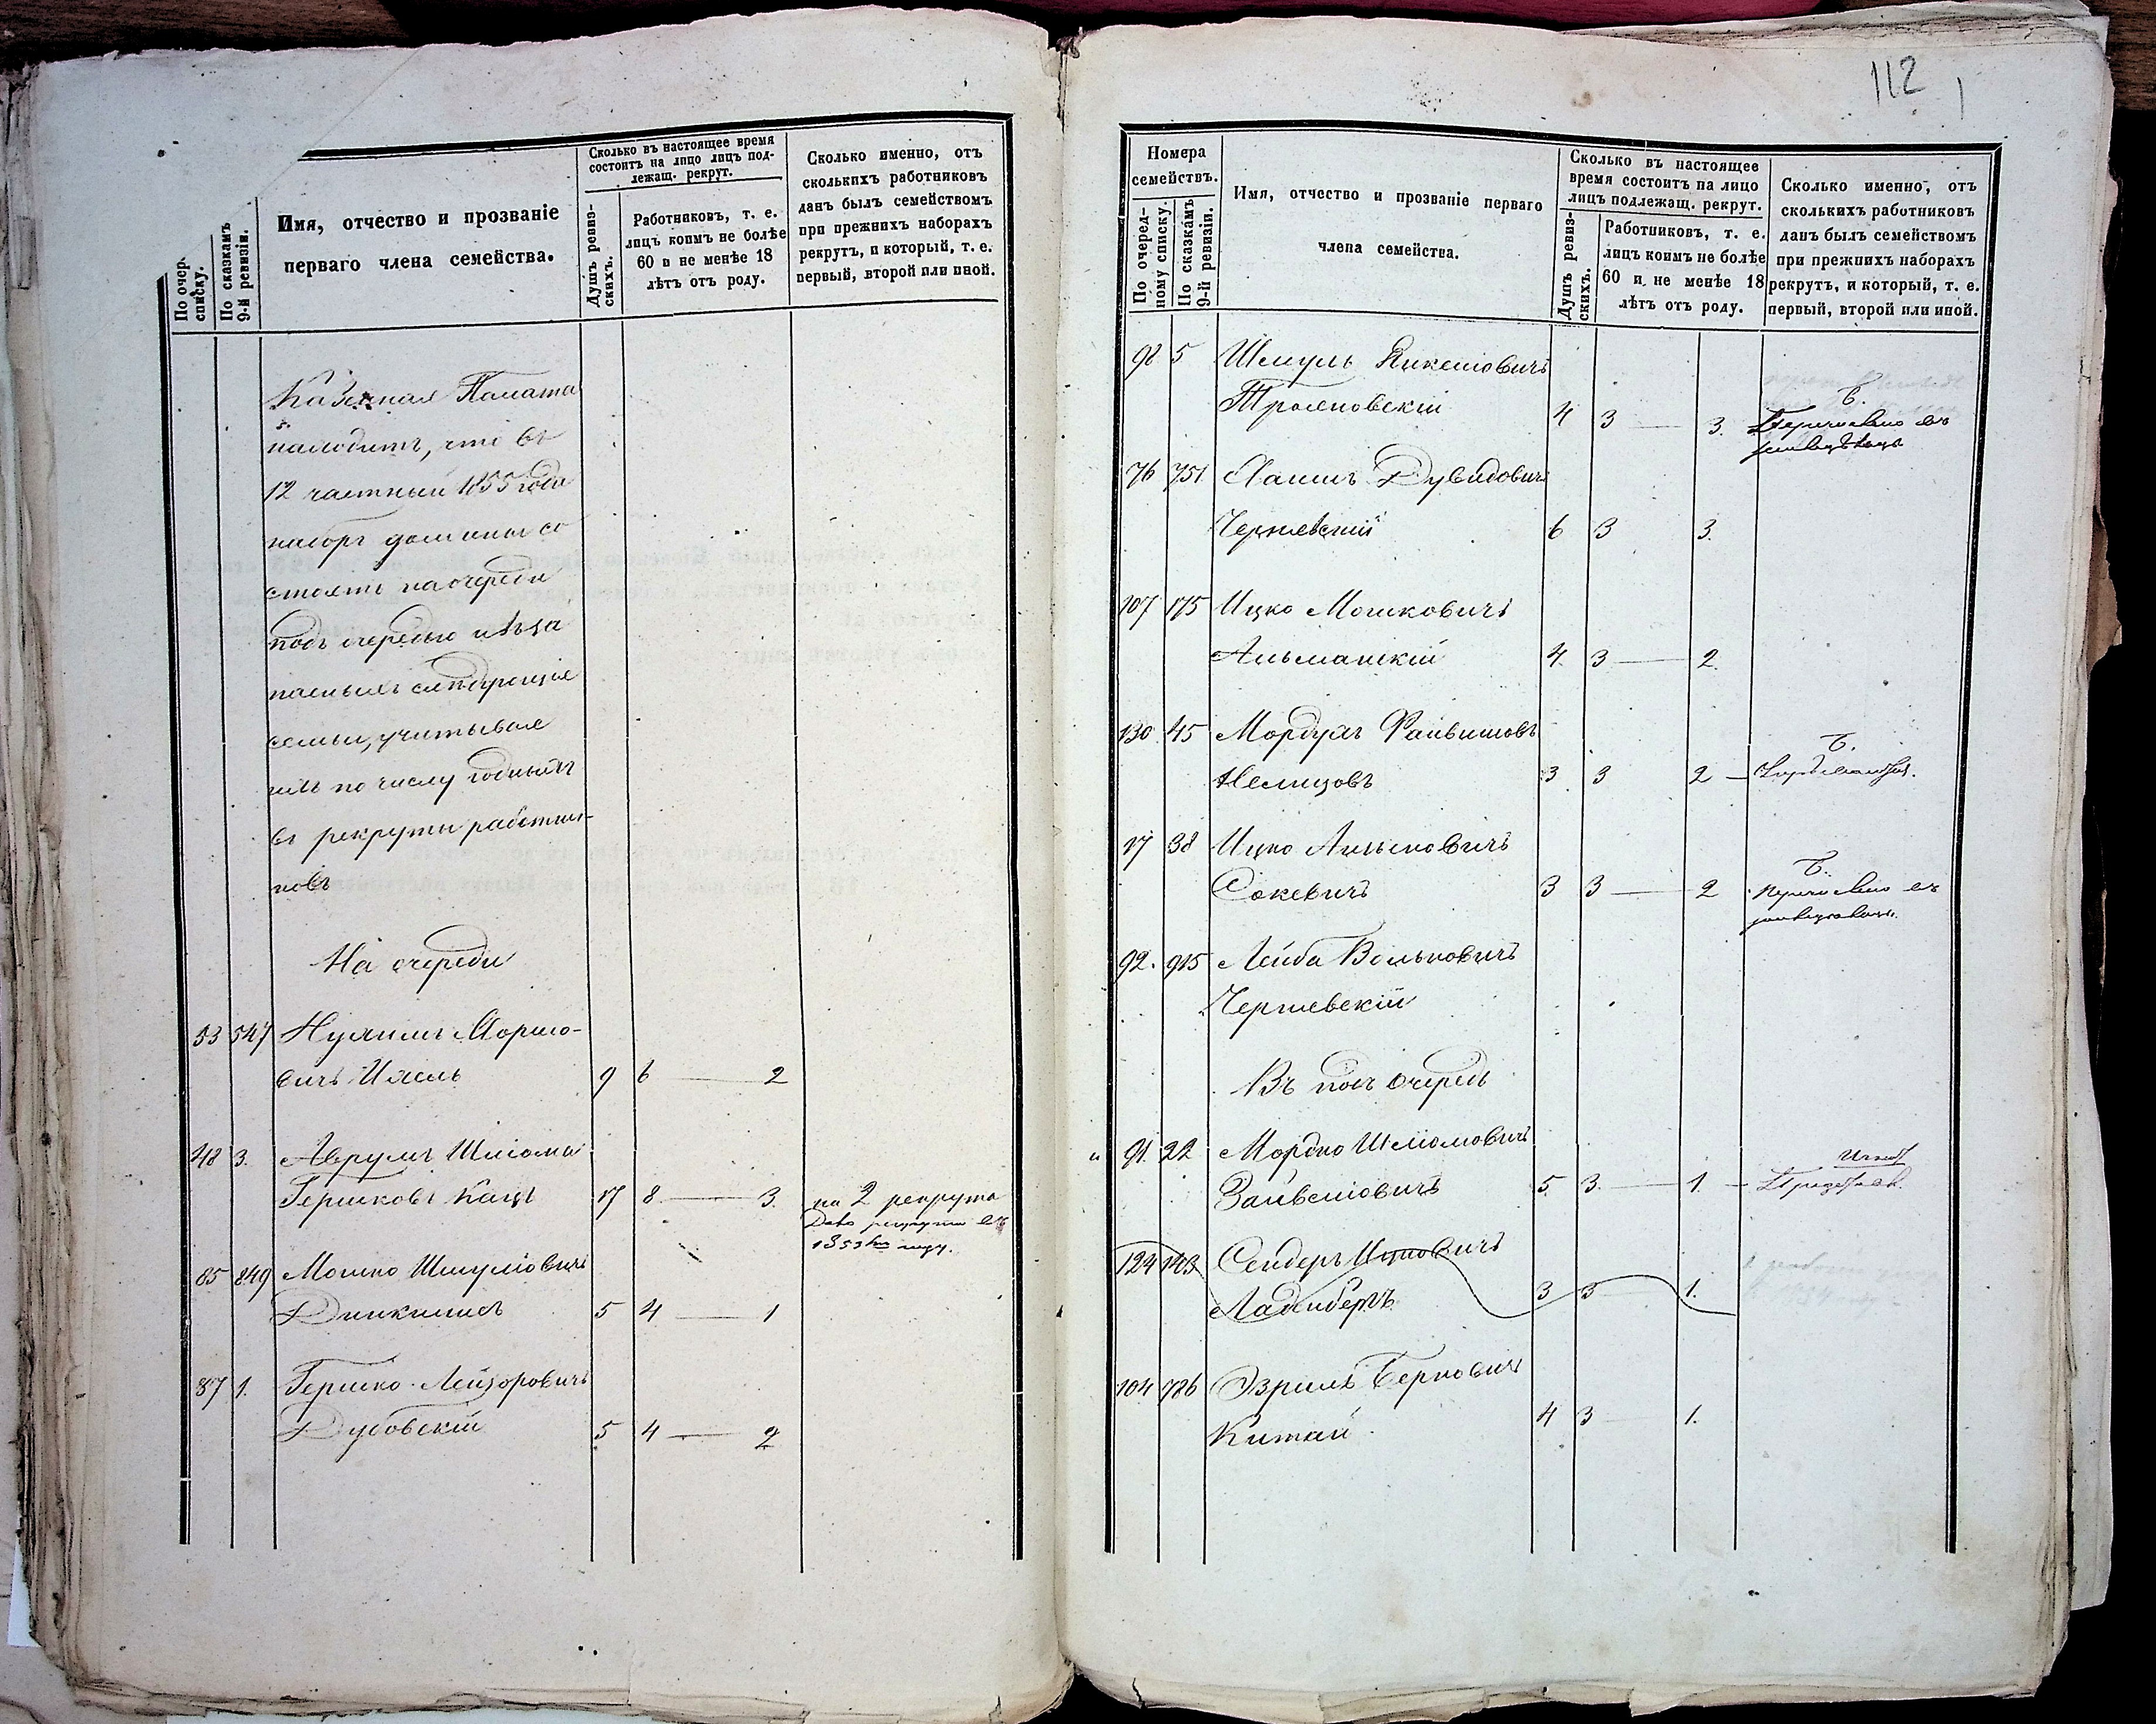 112
По очер. списку.
По сказкамъ 9-й ревизіи.
Имя, отчество и прозваніе
перваго члена семейства.
Сколько въ настоящее время
состоитъ на лицо лицъ под-
лежащ. рекрут.
Душъ ревиз-
скихъ.
Работниковъ, т. е.
лицъ коимъ не болѣе
60 и не менѣе 18
лѣтъ отъ роду.
Сколько именно, отъ
сколькихъ работниковъ
данъ былъ семействомъ
при прежнихъ наборахъ
рекрутъ, и который, т. е.
первый, второй или иной.
Казенная Палата
находитъ, что въ
12 частный 1855 года
наборъ должны со
стоять на очереди
подъ очередью
слѣдующія
семьи, учитывая
ихъ по числу годныхъ
въ рекруты работни-
ковъ
На очереди
53 547 Нухимъ Моршо-
вичъ 9 6 — 2
48 3. Аврумъ Шлiома
Гершковъ Кацъ 17 8 — 3. на 2 рекрута
рекрута въ
1853 году.
85 849 Мошко Шмуліовичъ
5 4 — 1
87 1. Гершко Лейзоровичъ
Дубовскій 5 4 — 2
Номера
семействъ.
По очеред-
ному списку.
По сказкамъ
9-й ревизіи.
Имя, отчество и прозваніе перваго
члена семейства.
Сколько въ настоящее
время состоитъ на лицо
лицъ подлежащ. рекрут.
Душъ ревиз-
скихъ.
Работниковъ, т. е.
лицъ коимъ не болѣе
60 и не менѣе 18
лѣтъ отъ роду.
Сколько именно, отъ
сколькихъ работниковъ
данъ былъ семействомъ
при прежнихъ наборахъ
рекрутъ, и который, т. е.
первый, второй или иной.
98 5 Шмуль
Трояновскій 4 3 — 3.
76 751 Хаимъ Дувидовичъ
Чернявскій 6 3 3.
107 175 Ицко Мошковичъ
Альманскій 4. 3 — 2.
130 45 Мордухъ Файвишовъ
Немцовъ 3 3 2 —
17 38 Ицко
Сокевичъ 3 3 — 2
92. 915 Лейба Вольковичъ
Чернявскій
Въ подъ очередь
91 22 Мордко Шліомовичъ
Зайвеліовичъ 5. 3. — 1. —
124 143 Сендеръ Ицковичъ
3 3 1.
104 786 Эзриль Берковичъ
Китай 4 3 1.